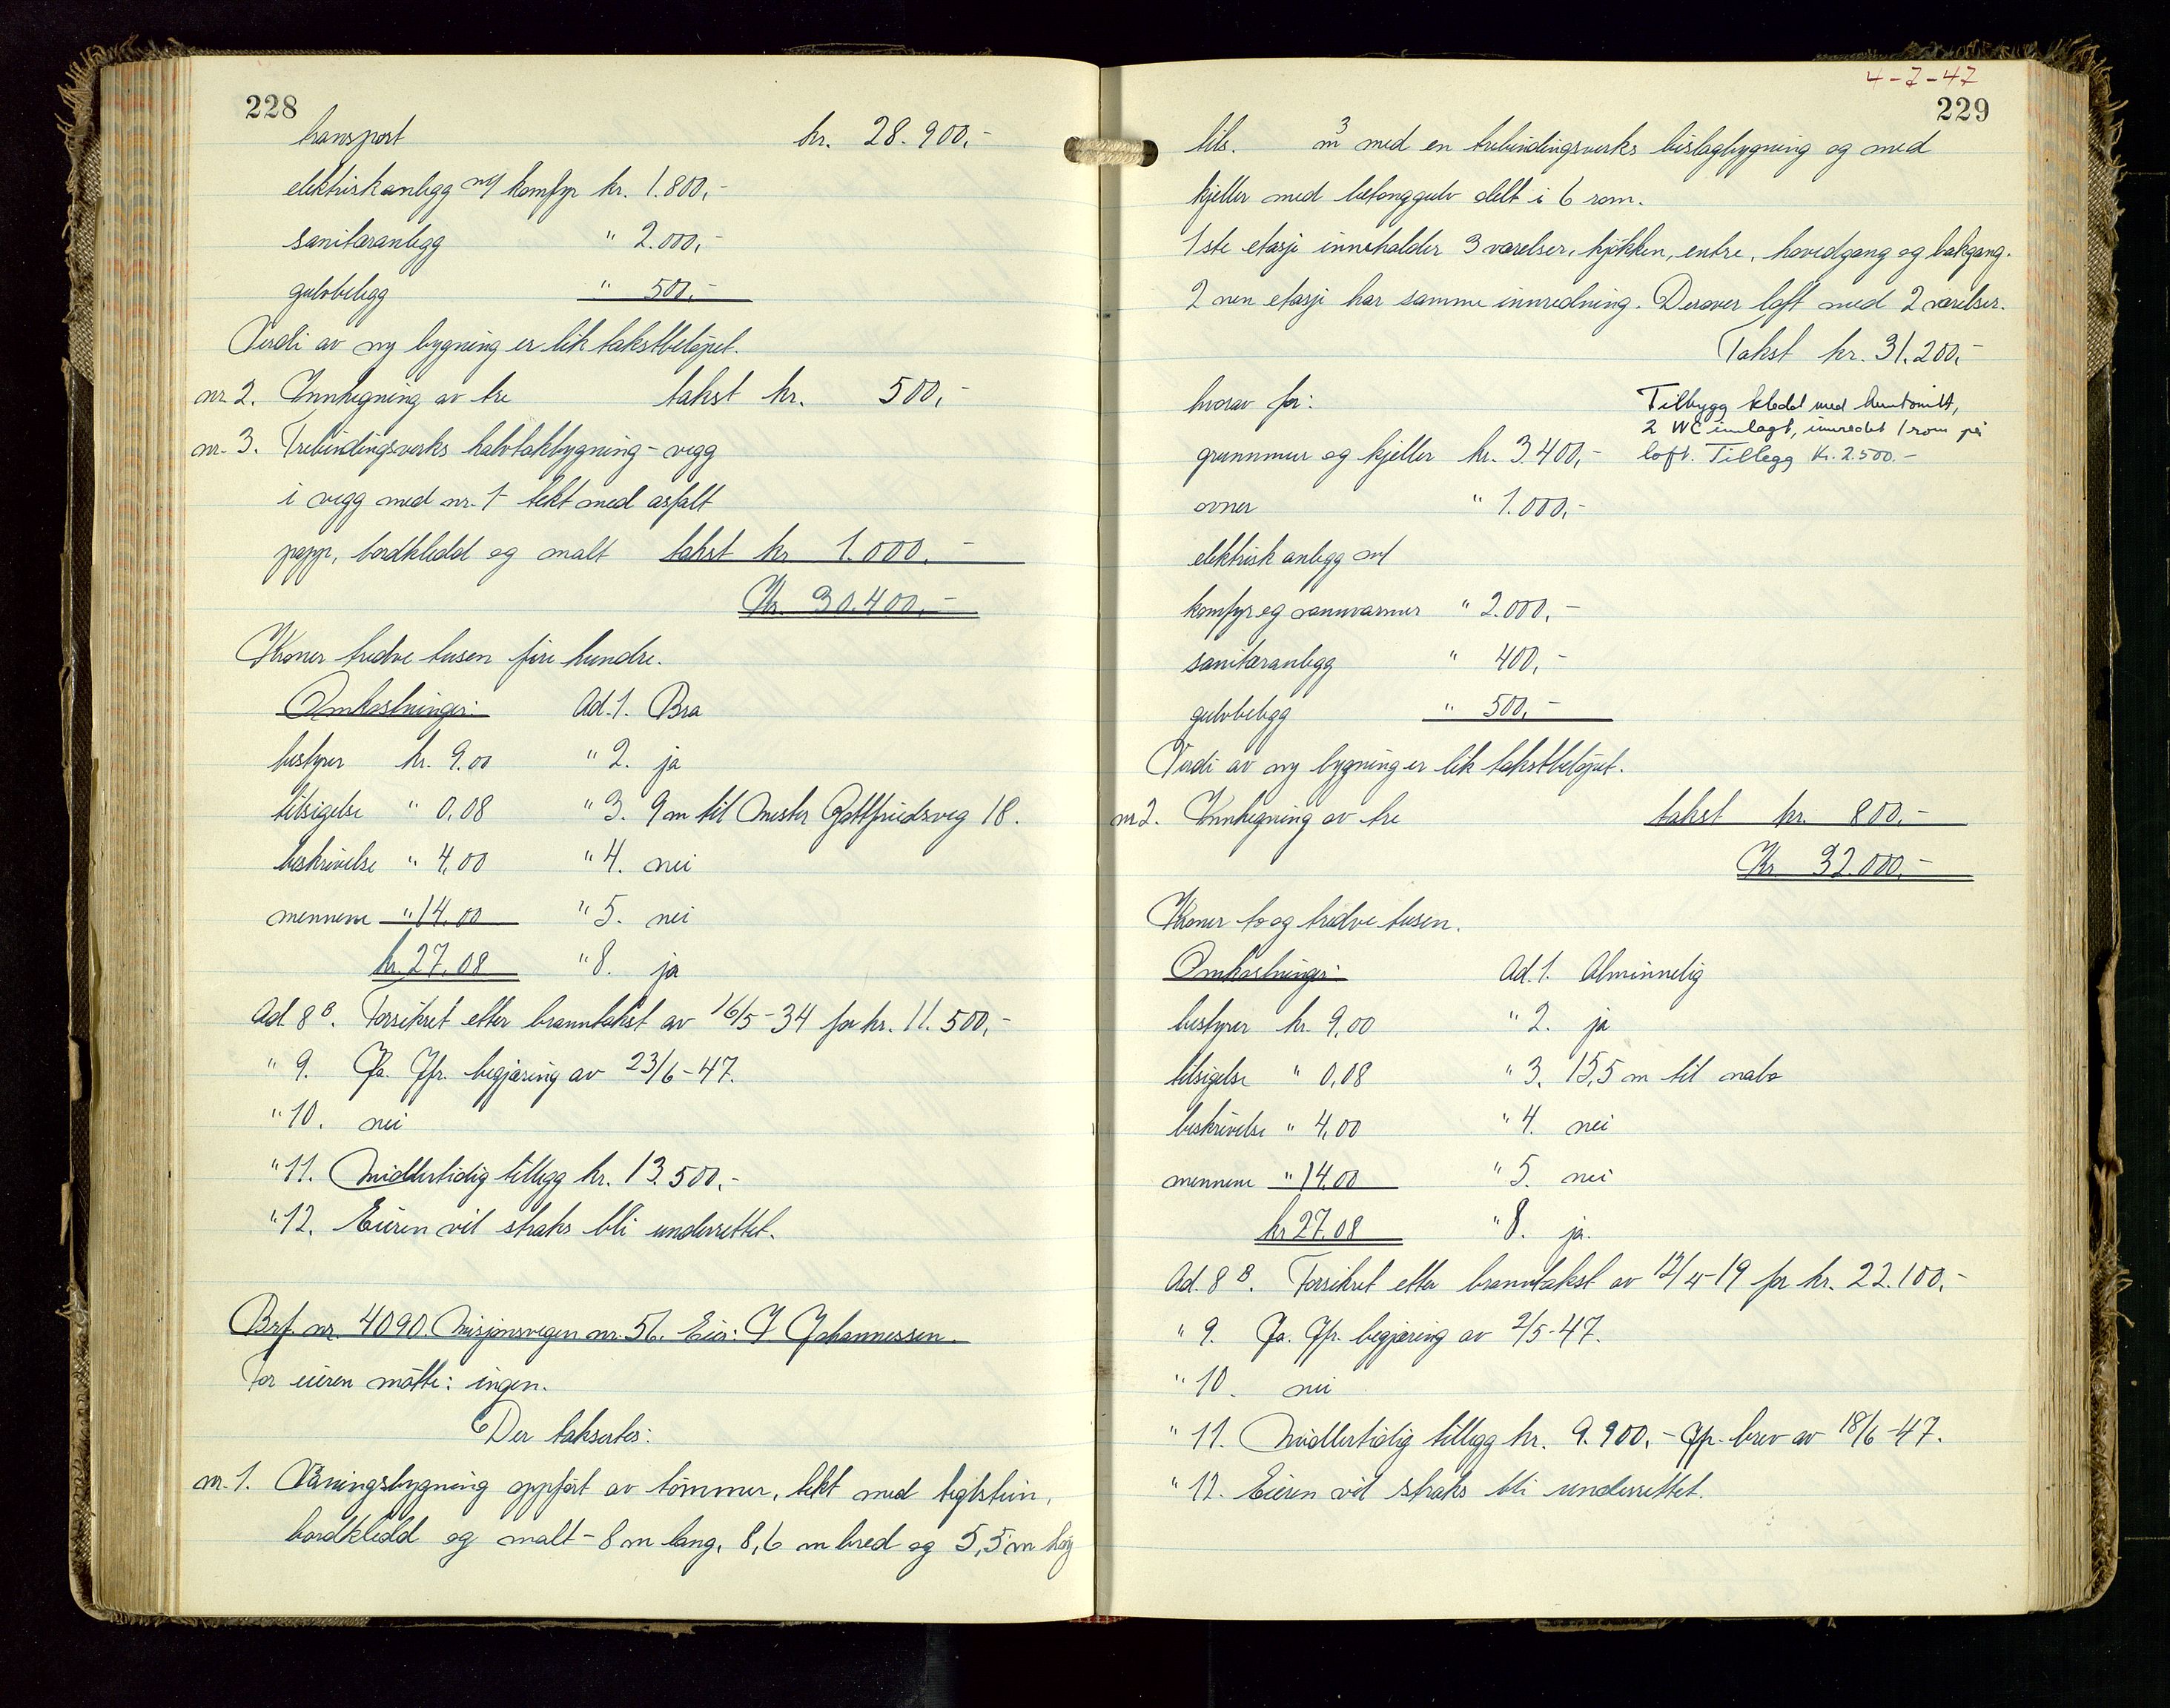 228
transport kr. 28.900,-
elektrisk anlegg m/ komfyr kr. 1.800,-
sanitæranlegg " 2.000,-
gulvbelegg " 500,-
Verdi av ny bygning er lik takstbeløpet.
nr. 2. Innhegning av tre takst kr. 500,-
nr. 3. Trebindingsverks halvtakbygning - vegg
i vegg med nr. 1 - tekt med asfalt
papp, bordkledd og malt takst kr. 1.000.-
Kr. 30.400,-
Kroner tredve tusen fire hundre.
Omkostninger: Ad. 1. Bra
bestyrer kr. 9.00 " 2. ja
tilsigelse " 0,08 " 3. 9 m til Mester Gottfriedsveg 18.
beskrivelse " 4,00 " 4. nei
mennene " 14.00 " 5. nei
kr. 27.08 " 8. ja
Ad. 8 B. Forsikret etter branntakst av 16/5-34 for kr. 11.500,-
" 9. Ja. Jfr. begjæring av 23/6-47.
" 10. nei
" 11. Midlertidig tillegg kr. 13.500,-
" 12. Eieren vil straks bli underrettet.
Brf. nr. 4090. Misjonsvegen nr. 56. Eier: J Johannessen.
For eieren møtte: ingen.
Der taksertes:
nr. 1. Våningsbygning oppført av tømmer, tekt med teglstein,
bordkledd og malt - 8 m lang, 8,6 m bred og 5,5 m høg
4-7-47
229
tils. m3 med en trebindingsverks bislagbygning og med
kjeller med betonggulv delt i 6 rom.
1ste etasje inneholder 3 værelser, kjøkken, entre, hovedgang og bakgang.
2 nen etasje har samme innredning. Derover loft med 2 værelser.
Takst kr. 31.200,-
hvorav for: Tilbygg kledd med
2 WC innlagt, innredet 1 rom på
grunnmur og kjeller kr. 3.400,- loft. Tillegg Kr. 2.500.-
ovner " 1.000,-
elektrisk anlegg m/
komfyr og vannvarmer " 2.000,-
sanitæranlegg " 400,-
gulvbelegg " 500,-
Verdi av ny bygning er lik takstbeløpet.
nr 2. Innhegning av tre takst kr. 800,-
Kr 32.000,-
Kroner to og tredve tusen.
Omkostninger: Ad. 1. Alminnelig
bestyrer kr. 9,00 " 2. ja
tilsigelse " 0,08 " 3. 15,5 m til nabo
beskrivelse " 4,00 " 4. nei
mennene " 14.00 " 5. nei
kr 27.08 " 8. ja.
Ad. 8 B. Forsikret etter branntakst av 12/4-19 for kr. 22.100,-
" 9. Ja. Jfr. begjæring av 2/5-47.
" 10. nei
" 11. Midlertidig tillegg kr. 9.900,- Jfr. brev av 18/6-47.
" 12. Eieren vil straks bli underrettet.